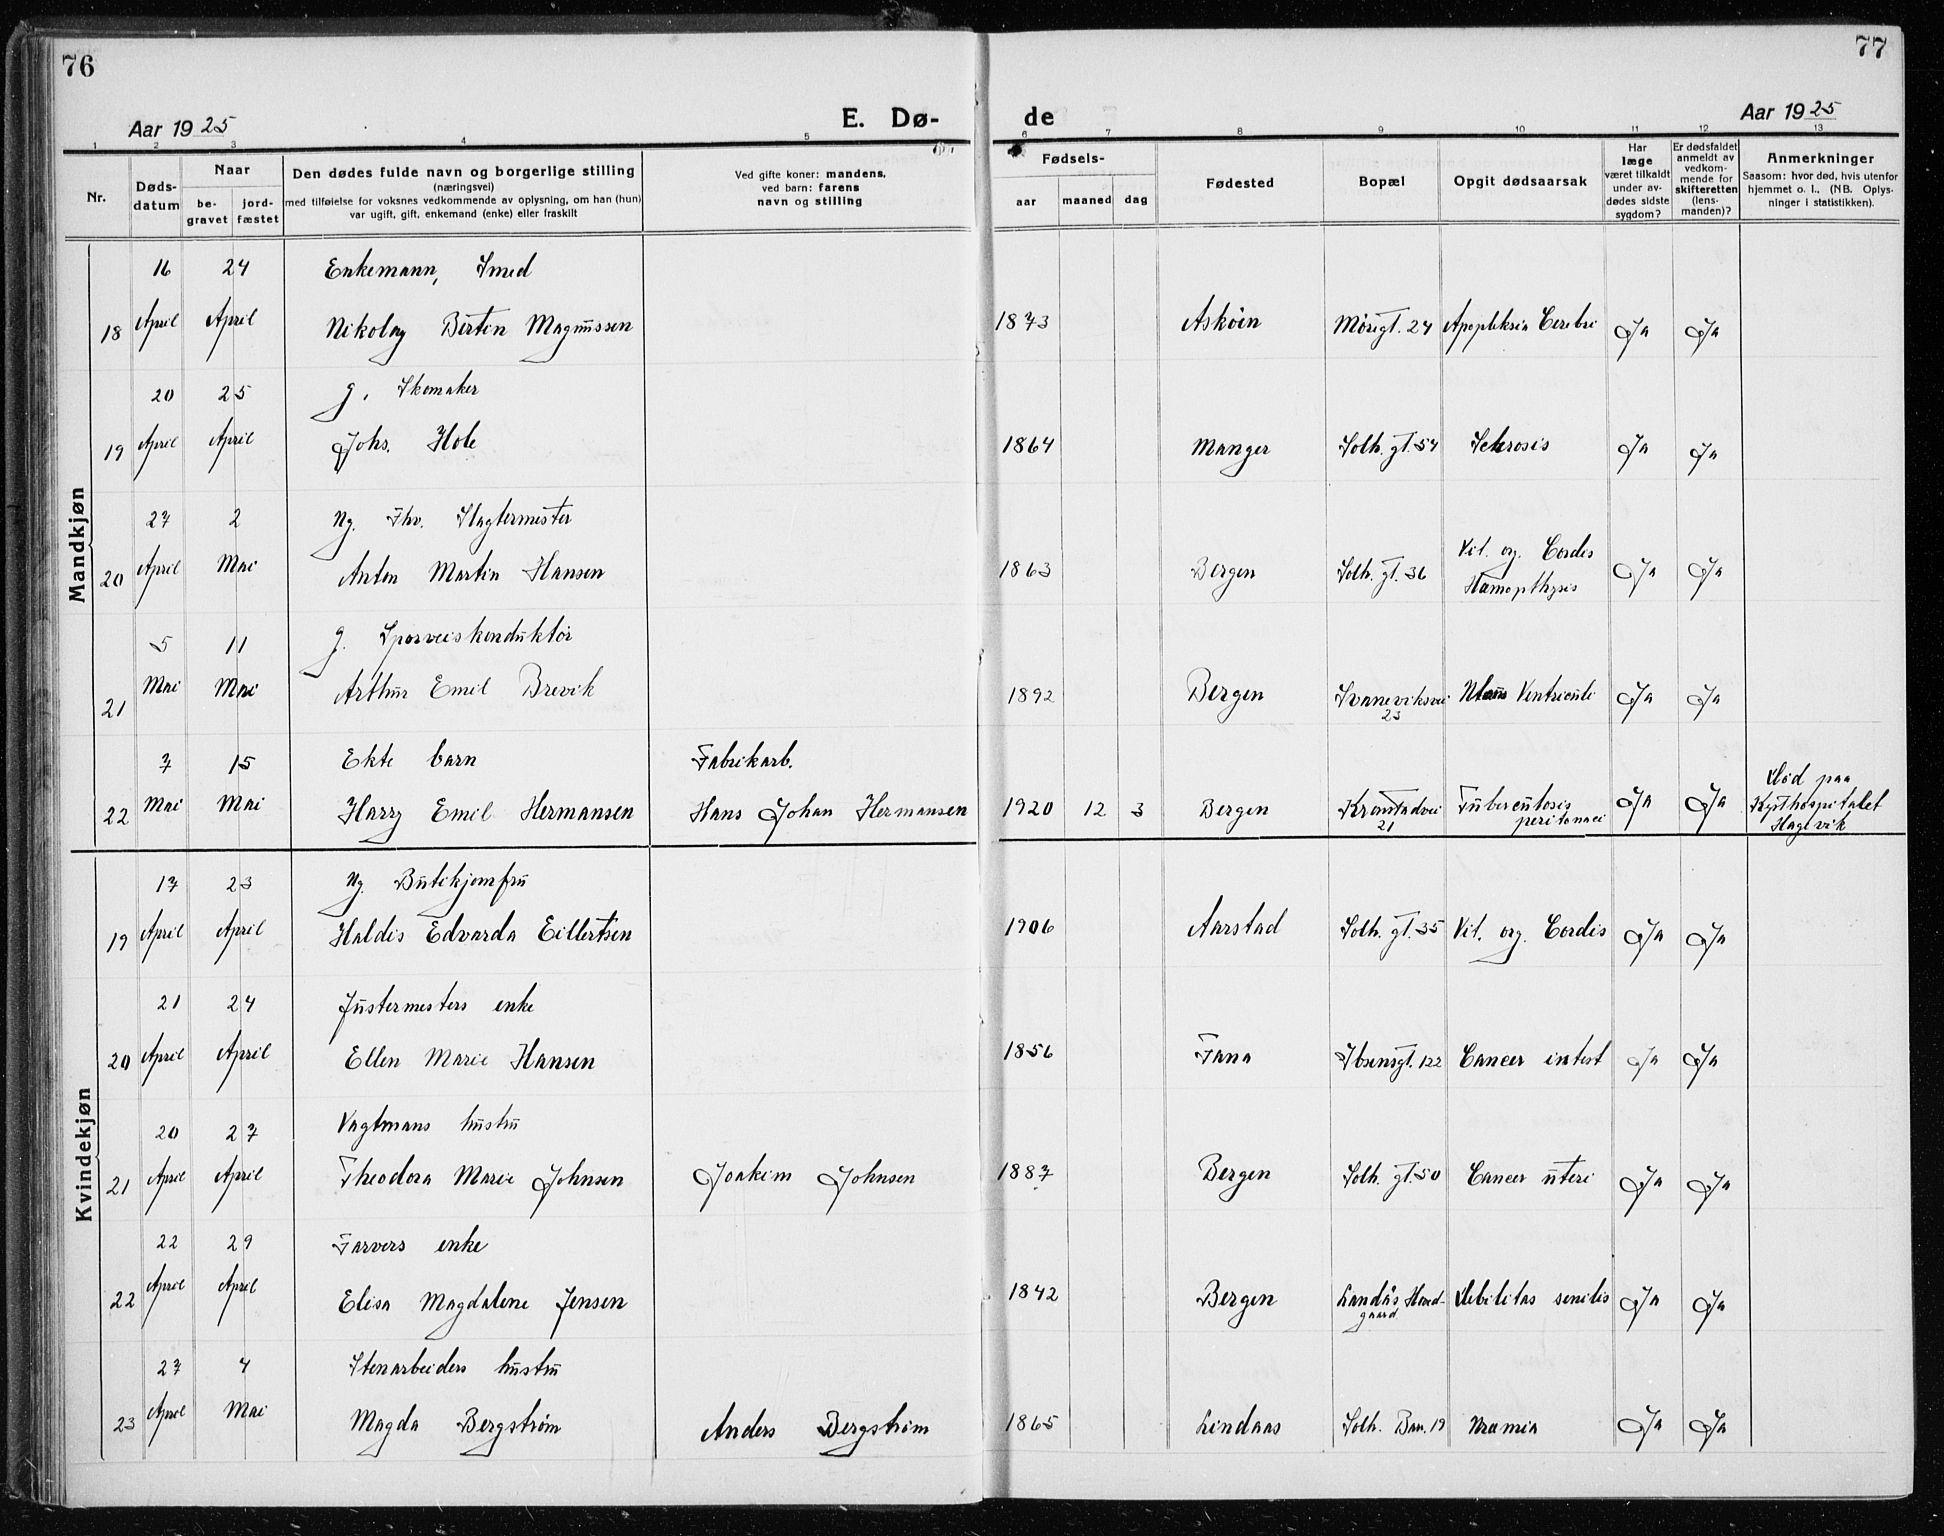 76
77
Aar 1925
E. Dø-
de
Aar 1925
1 2 3 4 5 6 7 8 9 10 11 12 13
Nr.
Døds-
datum
Naar
be-
gravet
jord-
fæstet
Den dødes fulde navn og borgerlige stilling
(næringsvei)
med tilføielse for voksnes vedkommende av oplysning, om han (hun)
var ugift, gift, enkemand (enke) eller fraskilt
Ved gifte koner: mandens,
ved barn: farens
navn og stilling
Fødsels-
aar maaned dag
Fødested
Bopæl
Opgit dødsaarsak
Har
læge
været tilkaldt
under av-
dødes sidste
sygdom?
Er dødsfaldet
anmeldt av
vedkom-
mende for
skifteretten
(lens-
manden)?
Anmerkninger
Saasom: hvor død, hvis utenfor
hjemmet o. l., (NB. Oplys-
ninger i statistikken).
Mandkjøn
16 24 Enkemann, Smed
18 April April Nikolay Bertin Magnussen 1873 Askøen Mørigt. 24 Apopleksia Cerebri Ja Ja
20 25 g. Skomaker
19 April April Johs. Hole 1864 Manger Solh. gt. 54 Sclerosis Ja Ja
27 2 Ug. Fhv. Slagtermester
20 April Mai Anton Martin Hansen 1863 Bergen Solh. gt. 36 Vit. org. Cordis Ja Ja
Hæmopthysis
5 11 g. Sporveiskonduktør
21 Mai Mai Arthur Emil Brevik 1892 Bergen Svaneviksvei Ventriculi Ja Ja
23
7 15 Ekte barn Fabrikarb.
22 Mai Mai Harry Emil Hermansen Hans Johan Hermansen 1920 12 3 Bergen Kronstadvei Tuberculosis Ja Ja Død paa
21 peritonaei Kysthospitalet
Hagevik
Kvindekjøn
17 23 Ug. Butikjomfru
19 April April Haldis Edvarda Eilertsen 1906 Aarstad Solh. gt. 35 Vit. org. Cordis Ja Ja
21 24 Justermesters enke
20 April April Ellen Marie Hansen 1856 Fana Ibsensgt. 122 Cancer intest Ja Ja
20 27 Vagtmans hustru
21 April April Theodora Marie Johnsen Joakim Johnsen 1887 Bergen Solh. gt. 50 Cancer uteri Ja Ja
22 29 Farvers enke
22 April April Elisa Magdalene Jensen 1842 Bergen Landås Hoved- Debilitas senilis Ja Ja
gaard
27 4 Stenarbeiders hustru
23 April Mai Magda Bergstrøm Anders Bergstrøm 1865 Lindaas Solh. Bak. 19 Uræmia Ja Ja